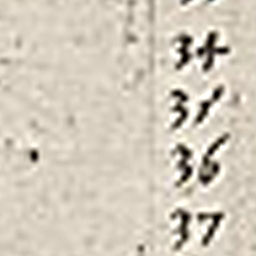 34
35
36
37